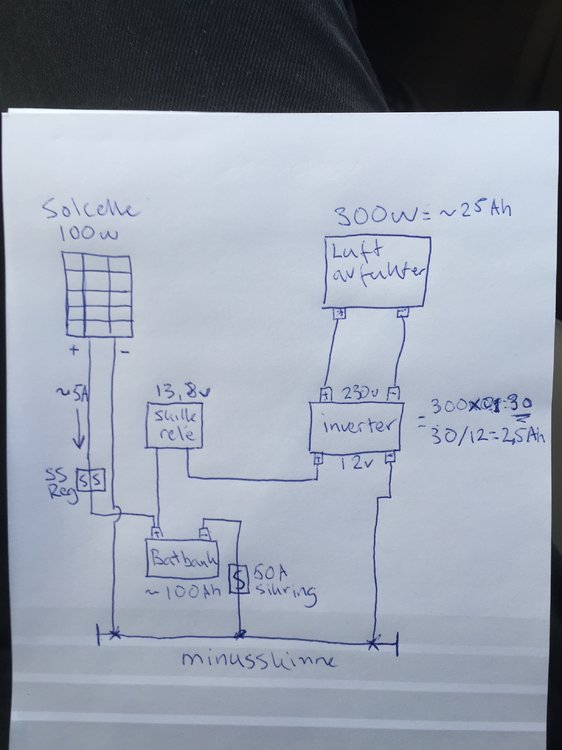 Solcelle
100w
300w = ~25Ah
Luft
avfukter
+
-
+ -
~5A
13,8v
skille
rele
+ 230v -
inverter
+ 12v -
= 300x01:30
30/12=2,5Ah
SS
Reg
S S
+ -
Batbank
~100Ah
S
50A
sikring
minusskinne